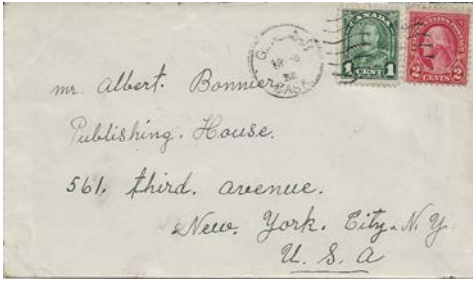 CANADA
1 CENT 1
2 CENTS 2
SASK
mr. Albert. Bonnier
Publishing. House.
561. third. avenue.
New. York. City. N. Y.
U. S. A